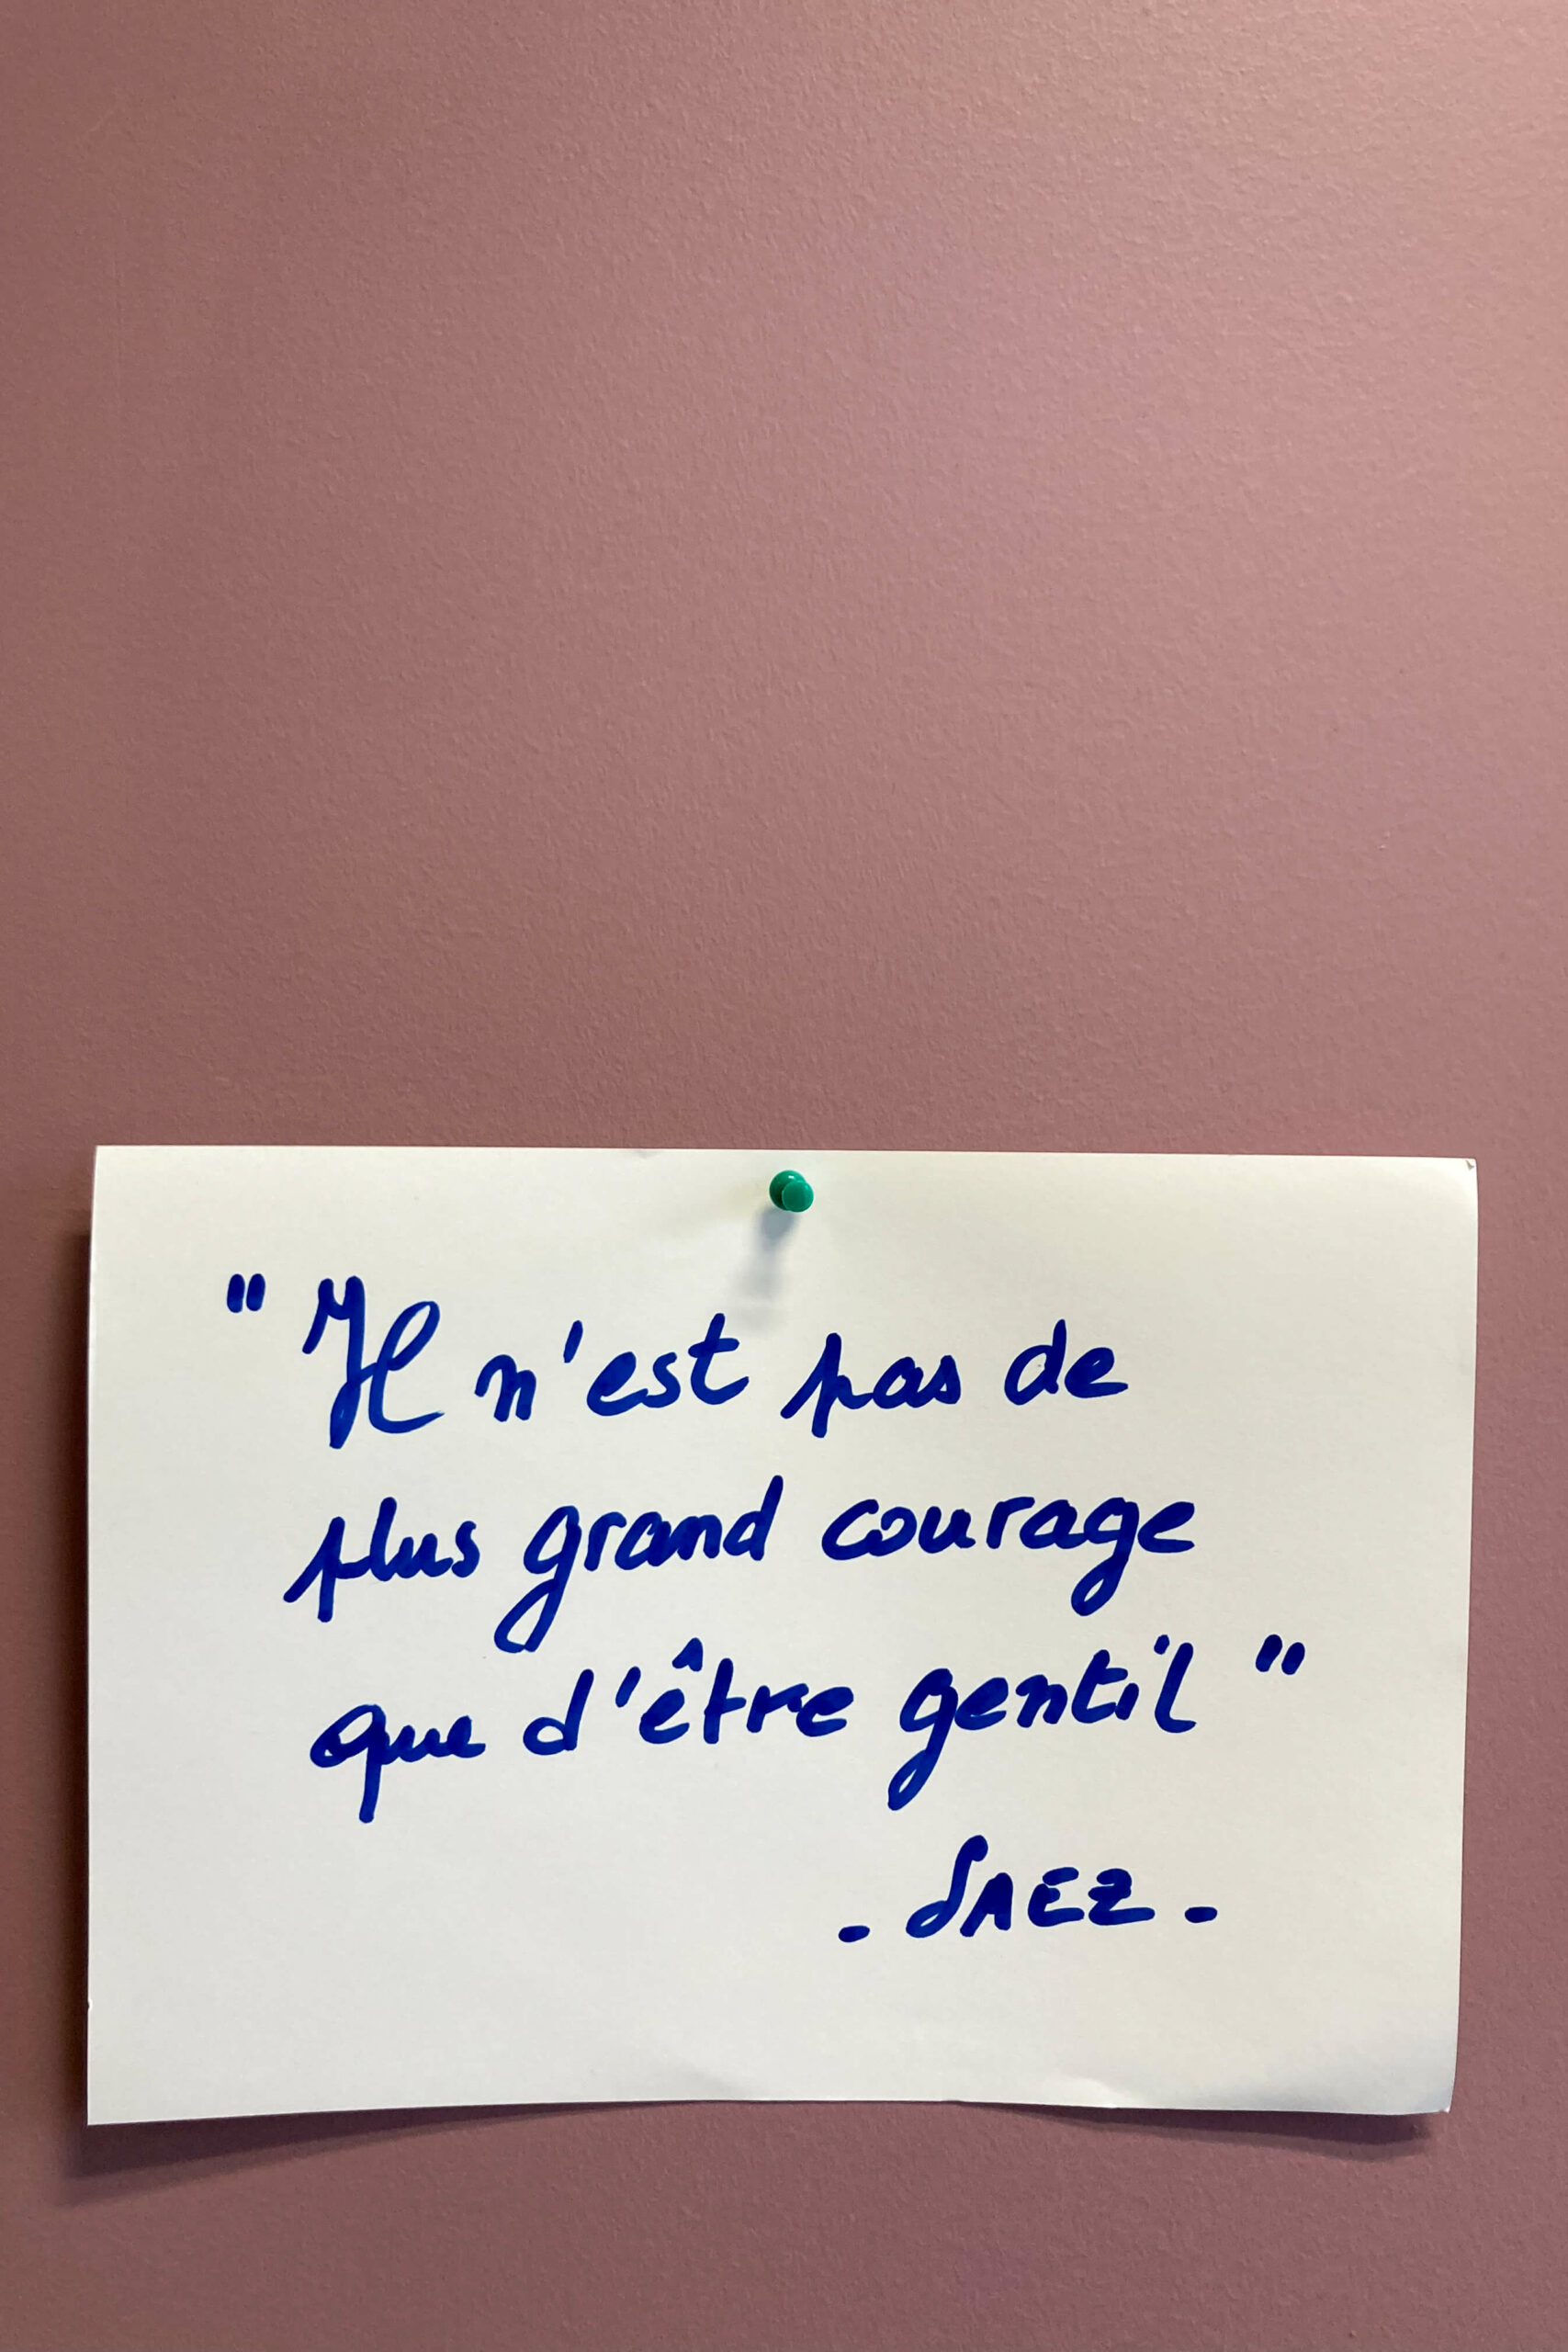 "Il n'est pas de
plus grand courage
que d'être gentil"
- SAEZ -